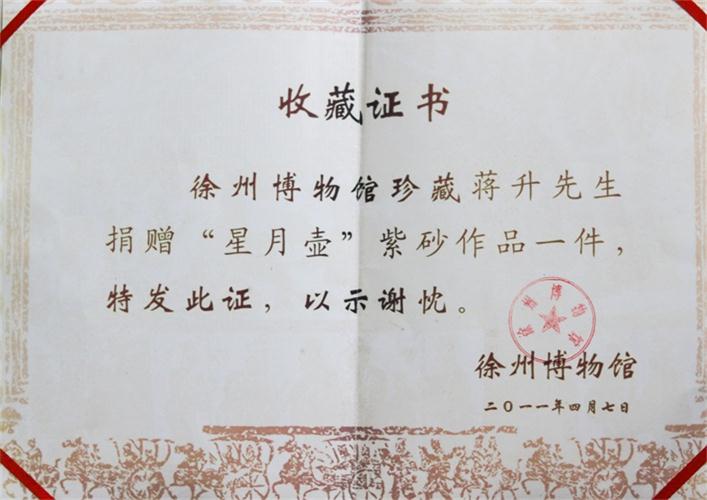 收藏证书
徐州博物馆珍藏蒋升先生
捐赠“星月壶”紫砂作品一件，
特发此证，以示谢忱。
徐州博物馆
徐州博物馆
二〇一一年四月七日